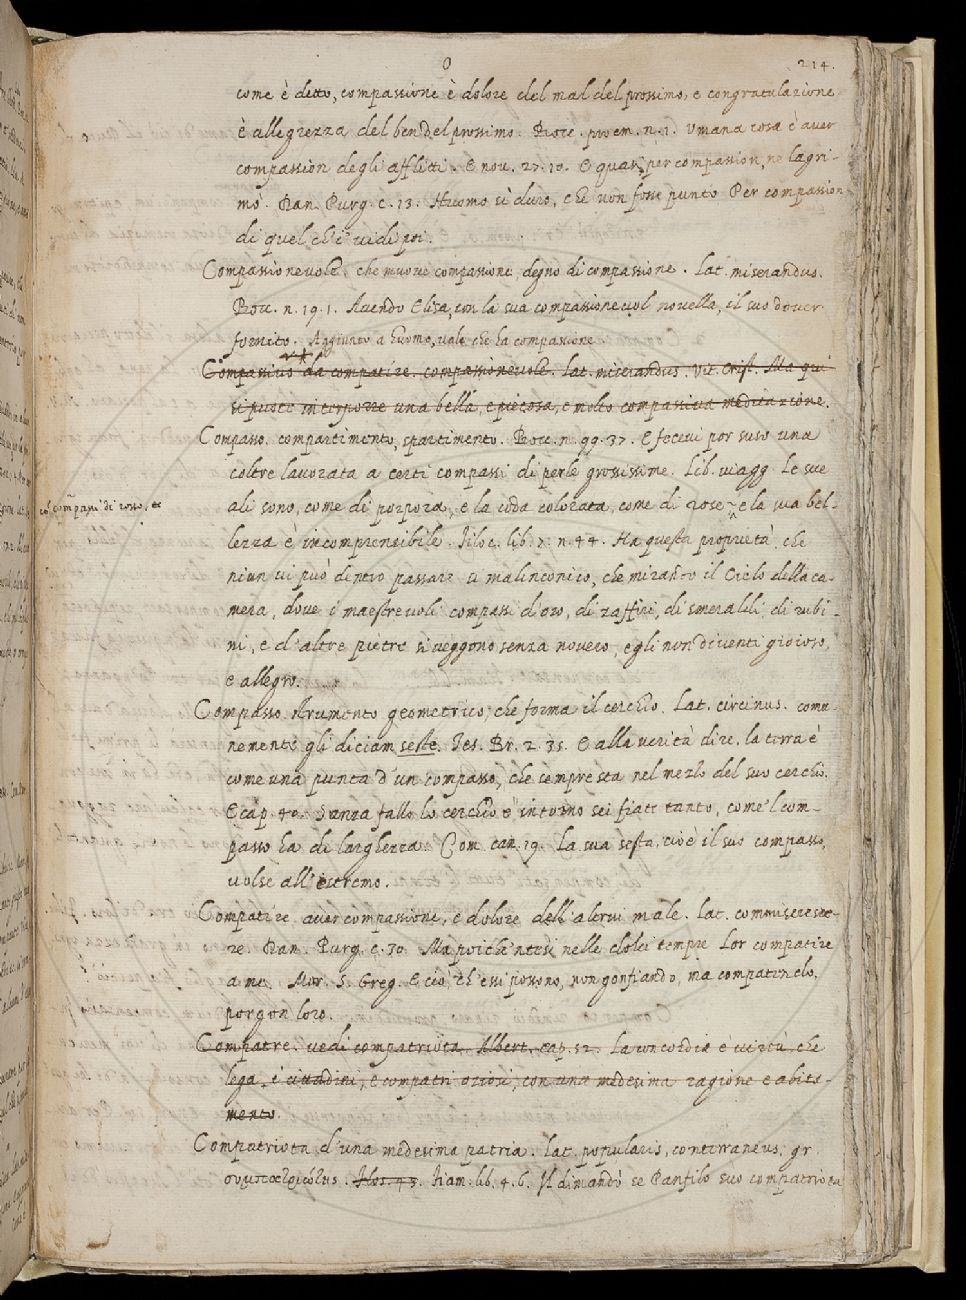 0
214.
come è detto, compassione è dolore del mal del prossimo, e congratulazione
è allegrezza del ben del prossimo. Bocc. proem. n. 1. Umana cosa è aver
compassion degli afflitti. E nov. 27. 10. E quasi per compassion, ne lagri-
mò. Dan. Purg. c. 13. Huomo sì duro, che non fosse punto Per compassion
di quel ch'i vidi poi.
Compassionevole. che muove compassione, degno di compassione. Lat. miserandus.
Bocc. n. 19. 1. Avendo Elisa, con la sua compassionevol novella, il suo dover
fornito. Aggiunto a huomo, vale che ha compassione
Compassivo da compatire. compassionevole. Lat. miserandus. Vit. Crist. Ma qui
si puote interporre una bella, e pietosa, e molto compassiva meditazione.
Compasso. compartimento, spartimento. Bocc. n. 99. 37. E fecevi por suso una
coltre lavorata a certi compassi di perle grossissime. Lib. viagg. Le sue
col compassi di rosso, etc
ali sono, come di porpora, e la coda colorata, come di rose e la sua bel-
lezza è incomprensibile. Filoc. lib. 7. n. 44. Ha questa proprietà, che
niun vi può dentro passare sì malinconico, che mirando il Cielo della ca-
mera, dove i maestrevoli compassi d'oro, di zaffiri, di smeraldi, di rubi-
ni, e d'altre pietre si veggono senza novero, egli non diventi gioioso,
e allegro.
Compasso. strumento geometrico, che forma il cerchio. Lat. circinus. comu-
nemente gli diciam seste. Tes. Br. 2. 35. E alla verità dire, la terra è
come una punta d'un compasso, che sempre sta nel mezzo del suo cerchio.
E cap. 40. Sanza fallo lo cerchio è intorno sei fiate tanto, come 'l com-
passo ha di larghezza. Com. can. 19. La sua sesta, cioè il suo compasso,
volse all'estremo.
Compatire. aver compassione, e dolore dell'altrui male. Lat. commiseresce-
re. Dan. Purg. c. 30. Ma poich'ntesi nelle dolci tempre Lor compatire
a me. Mor. S. Greg. E ciò, ch'essi possono, non gonfiando, ma compatendo,
porgon loro.
Compatre. vedi compatriota. Albert. cap. 52. La concordia è virtù, che
lega i cittadini, e compatri oziosi, con una medesima ragione e abita-
mento.
Compatriota, d'una medesima patria. Lat. popularis, conterraneus, gr.
Flos. 45. Fiam. lib. 4. 6. Il dimandò se Panfilo suo compatriota